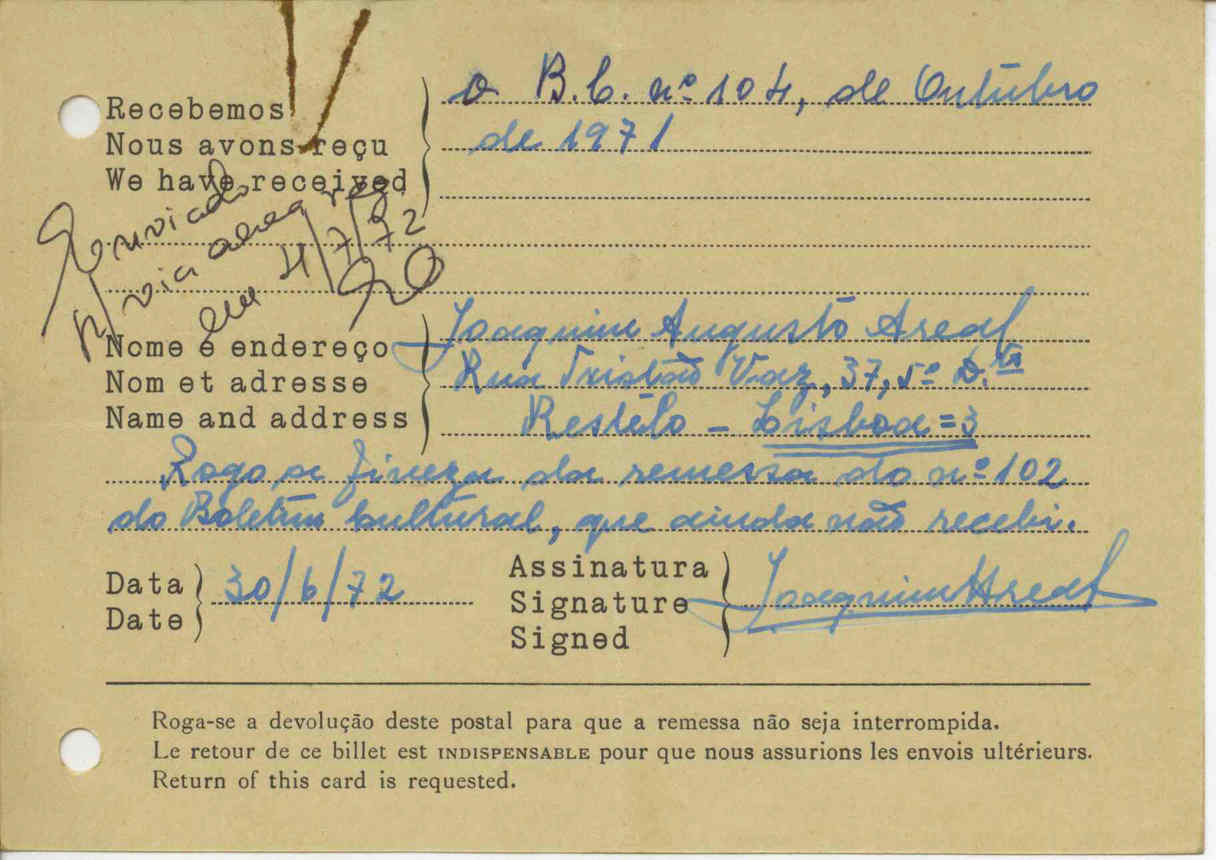 Recebemos
Nous avons reçu
We have received
o B.C. nº 104, de Outubro
de 1971
Reenviado
p/ via aerea reg.
em 4/7/72
Nome e endereço
Nom et adresse
Name and address
Joaquim Augusto Areal
Rua Tristão Vaz, 37, 5º D.to
Restêlo - Lisboa = 3
Rogo a fineza da remessa do nº 102
do Boletim Cultural, que ainda não recebi.
Data
Date
30/6/72
Assinatura
Signature
Signed
Joaquim Areal
Roga-se a devolução deste postal para que a remessa não seja interrompida.
Le retour de ce billet est INDISPENSABLE pour que nous assurions les envois ultérieurs.
Return of this card is requested.